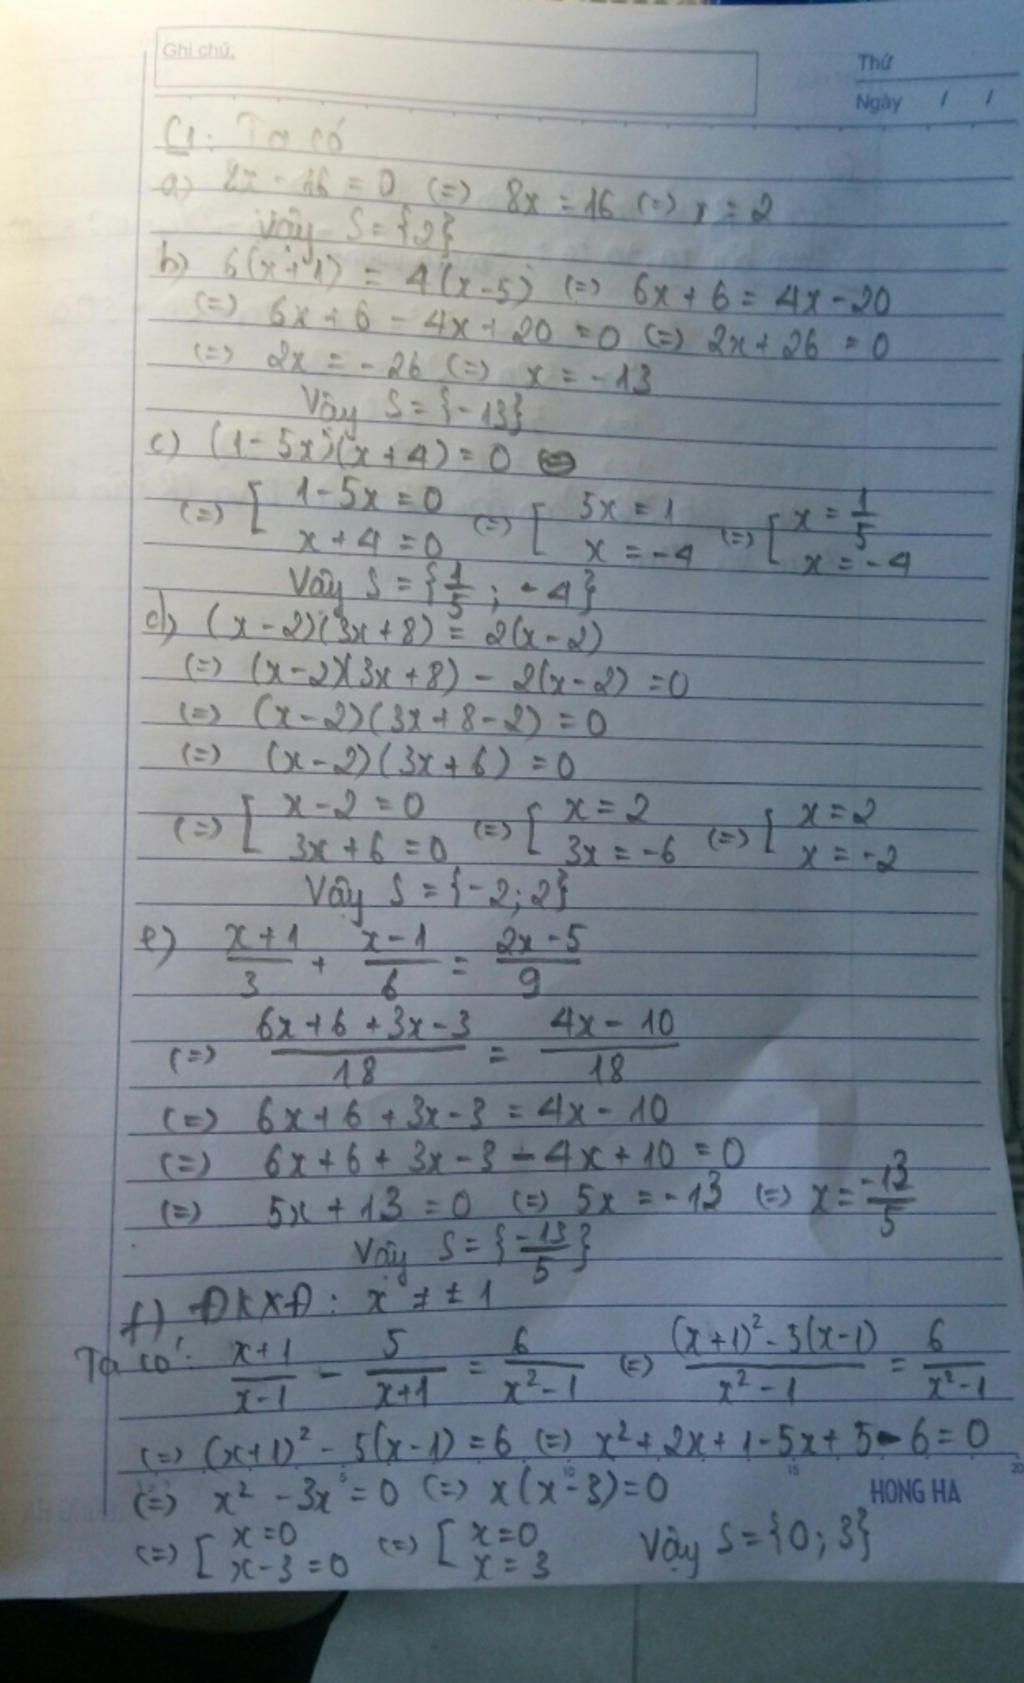 Ghi chú:
Thứ
Ngày / /
C1: Ta có
a) 8x - 16 = 0 (=) 8x = 16 (=) x = 2
Vậy S = {2}
b) 6(x+1) = 4(x-5) (=) 6x + 6 = 4x - 20
(=) 6x + 6 - 4x + 20 = 0 (=) 2x + 26 = 0
(=) 2x = -26 (=) x = -13
Vậy S = {-13}
c) (1-5x)(x+4) = 0
(=) [ 1-5x = 0 (=) [ 5x = 1 (=) [ x = 1/5
x + 4 = 0 x = -4 x = -4
Vậy S = {1/5; -4}
d) (x-2)(3x+8) = 2(x-2)
(=) (x-2)(3x+8) - 2(x-2) = 0
(=) (x-2)(3x+8-2) = 0
(=) (x-2)(3x+6) = 0
(=) [ x-2 = 0 (=) [ x = 2 (=) [ x = 2
3x + 6 = 0 3x = -6 x = -2
Vậy S = {-2; 2}
e) (x+1)/3 + (x-1)/6 = (2x-5)/9
(=) (6x+6+3x-3)/18 = (4x-10)/18
(=) 6x + 6 + 3x - 3 = 4x - 10
(=) 6x + 6 + 3x - 3 - 4x + 10 = 0
(=) 5x + 13 = 0 (=) 5x = -13 (=) x = -13/5
Vậy S = {-13/5}
f) ĐKXĐ: x ≠ ± 1
Ta có: (x+1)/(x-1) - 5/(x+1) = 6/(x²-1) (=) ((x+1)² - 5(x-1))/(x²-1) = 6/(x²-1)
(=) (x+1)² - 5(x-1) = 6 (=) x² + 2x + 1 - 5x + 5 - 6 = 0
5 10 15 20
(=) x² - 3x = 0 (=) x(x-3) = 0
HONG HA
(=) [ x = 0 (=) [ x = 0 Vậy S = {0; 3}
x - 3 = 0 x = 3